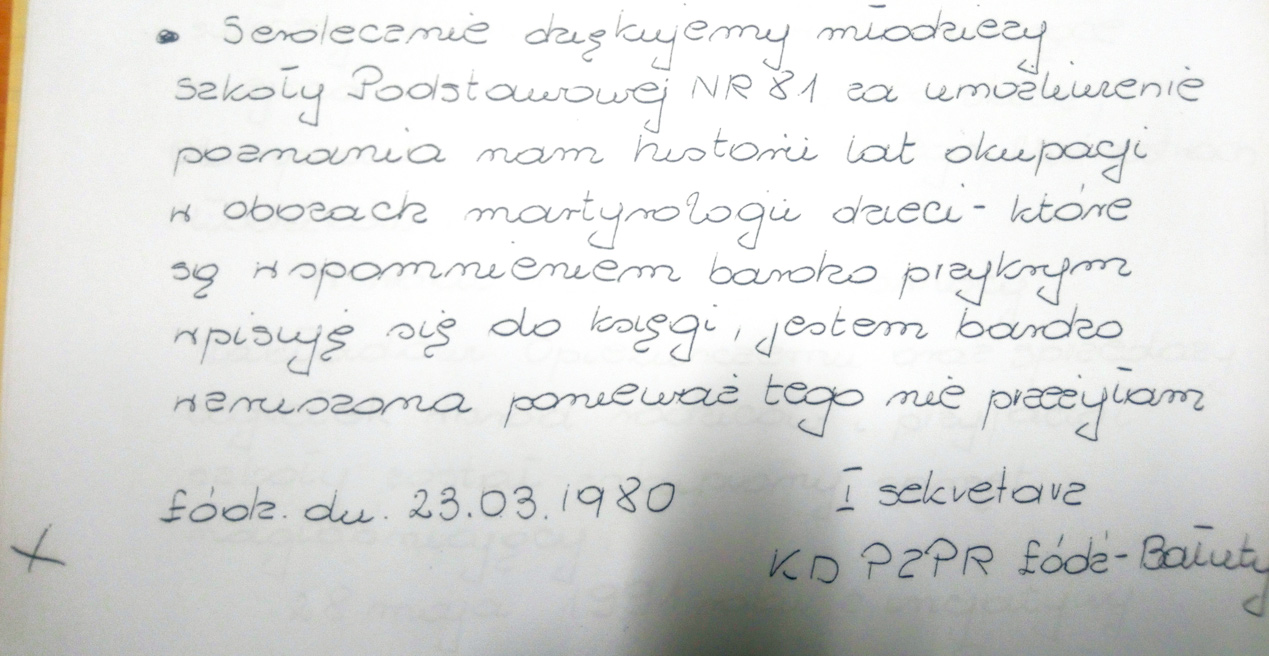 • Serdecznie dziękujemy młodzieży
szkoły Podstawowej NR 81 za umożliwienie
poznania nam historii lat okupacji
w obozach martyrologii dzieci - które
są wspomnieniem bardzo przykrym
wpisuję się do księgi, jestem bardzo
wzruszona ponieważ tego nie przeżyłam
Łódź. dn. 23.03.1980
I sekretarz
KD PZPR Łódź - Bałuty